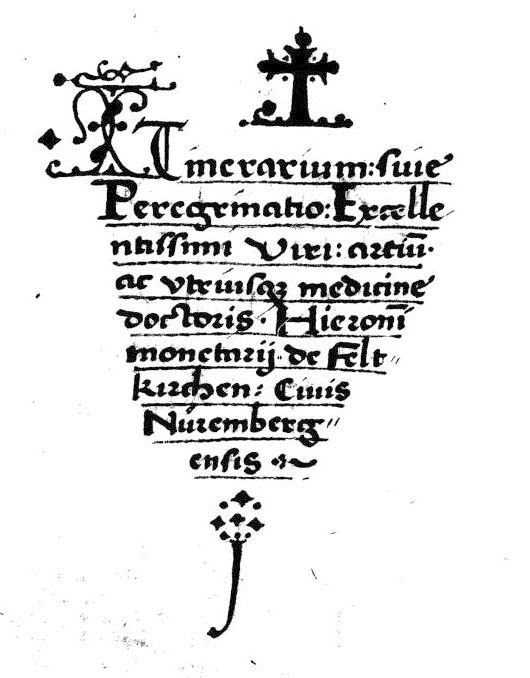 ITinerarium: siue
Peregrinatio: Excelle
ntissimi Viri: artiū·
ac vtriusqꝫ medicine
doctoris· Hieronī
monetarij de Felt〃
kirchen: Ciuis
Nuremberg〃
ensis